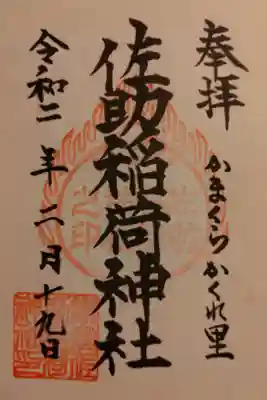 奉拝
かまくらかくれ里
佐助稲荷神社
令和二年二月十九日